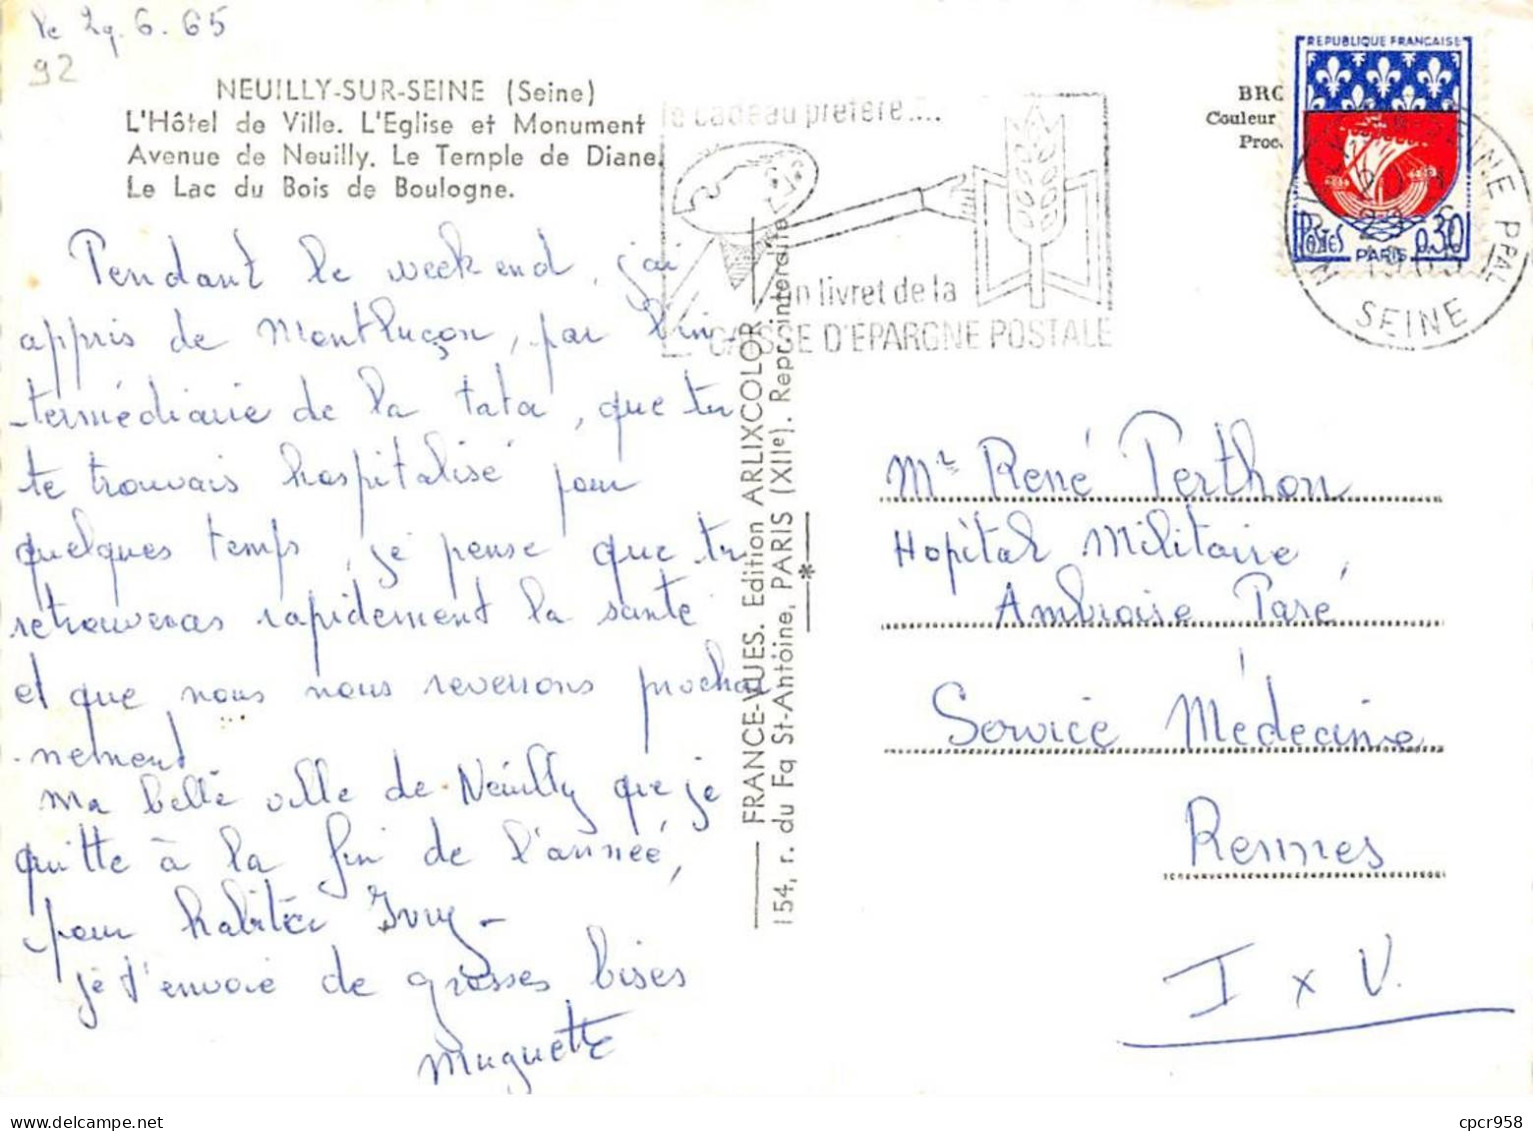 le 29.6.65
92
NEUILLY-SUR-SEINE (Seine)
L'Hôtel de Ville. L'Eglise et Monument
Avenue de Neuilly. Le Temple de Diane.
Le Lac du Bois de Boulogne.
Pendant le week end, j'ai
appris de Montluçon, par l'in-
-termédiaire de la tata, que tu
te trouvais hospitalisé pour
quelques temps, je pense que tu
retrouveras rapidement la santé
et que nous nous reverrons prochai
-nement
ma belle ville de Neuilly que je
quitte à la fin de l'année,
pour habiter Ivry -
je t'envoie de grosses bises
Muguette
le cadeau préféré...
un livret de la
CAISSE D'EPARGNE POSTALE
FRANCE-VUES. Edition ARLIXCOLOR
154, r. du Fg St-Antoine, PARIS (XIIe). Repr. interdite
*
BRO
Couleur
Proc
REPUBLIQUE FRANÇAISE
POSTES 0,30
PARIS
SEINE PPAL
1965
SEINE
Mr René Perthon
Hopital Militaire,
Ambroise Paré
Service Médecine
Rennes
I x V.
cpcr958